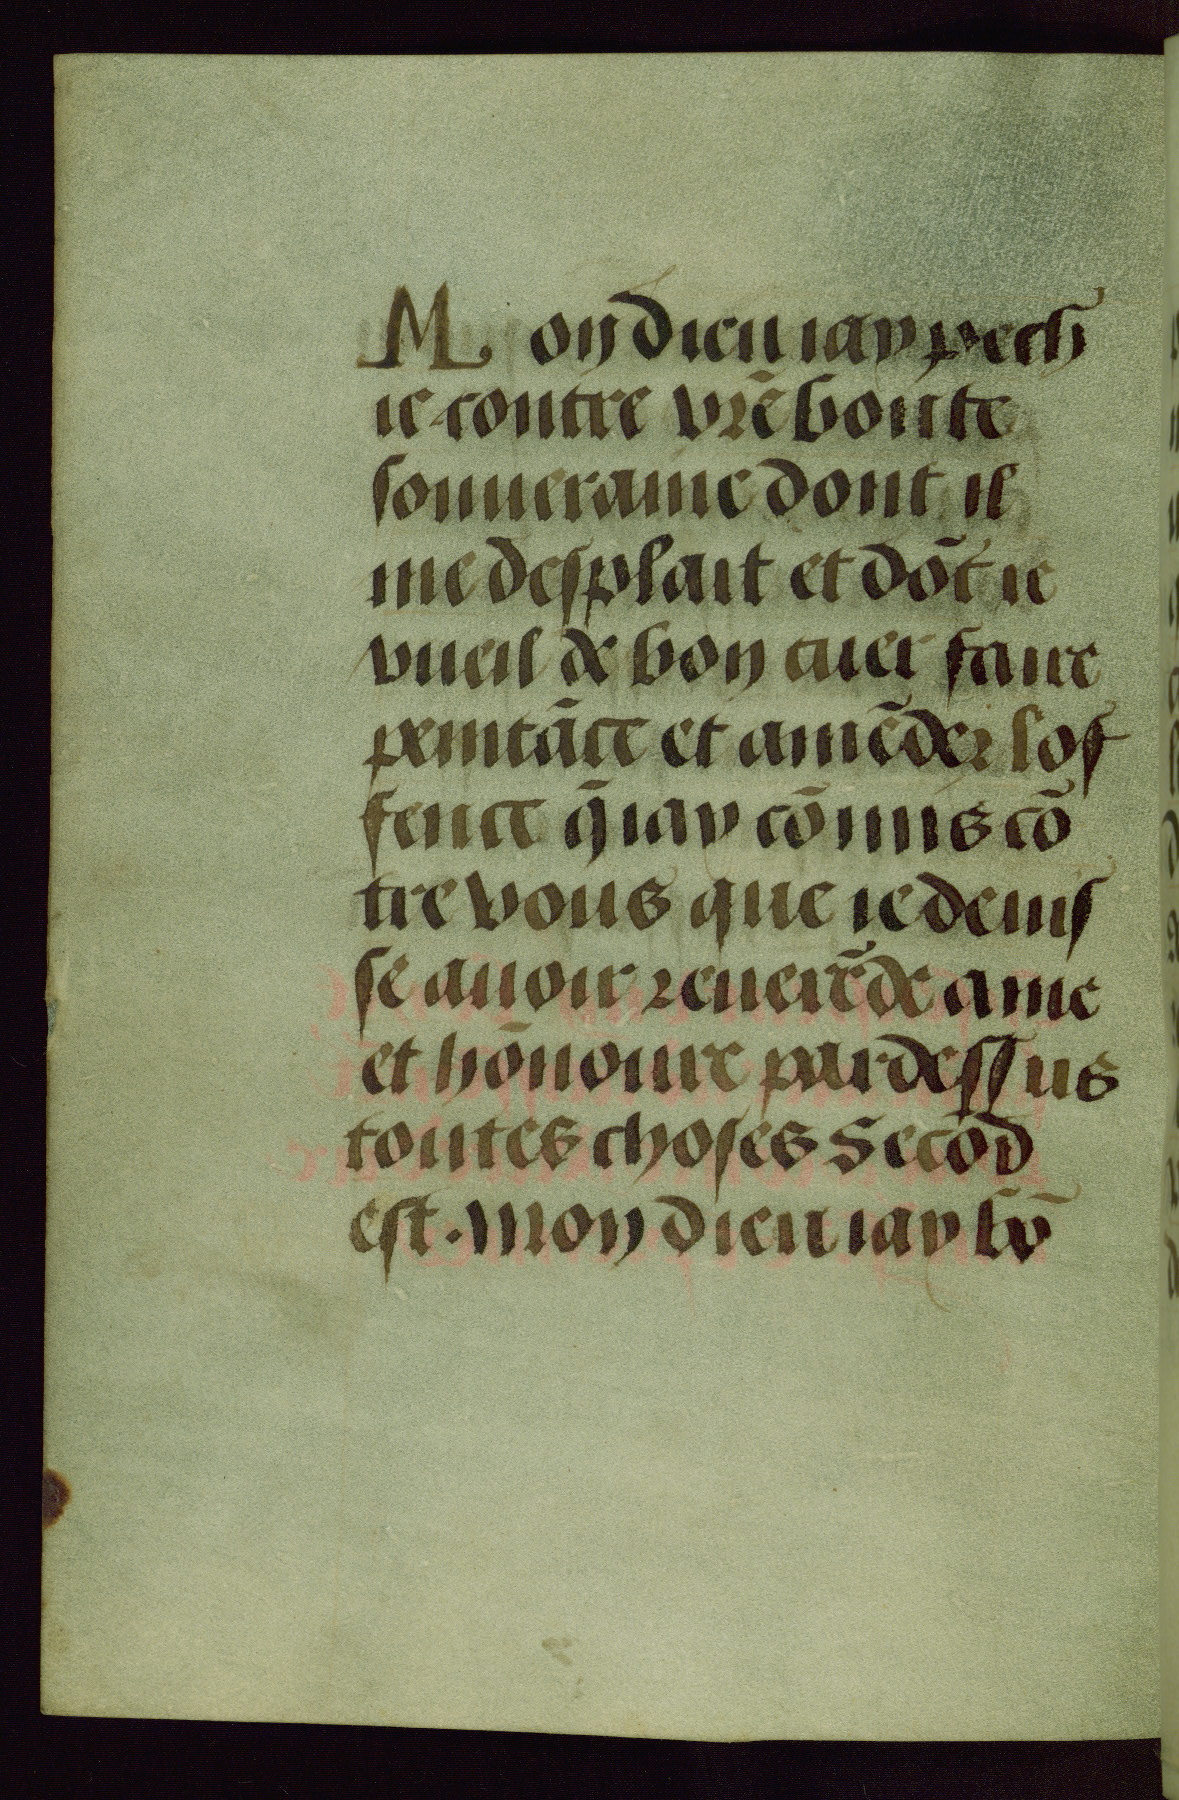 Mon dieu iay pech
ie contre vr̄e bonte
souueraine dont il
me desplait et dōt ie
vueil de bon cuer faire
penitāce et amēder lof
fence q̄ iay cōmis cō
tre vous que ie deuis
se auoir reuerēde ame
et hōnoure pardessus
toutes choses Secōd
est. Mon dieu iay bō